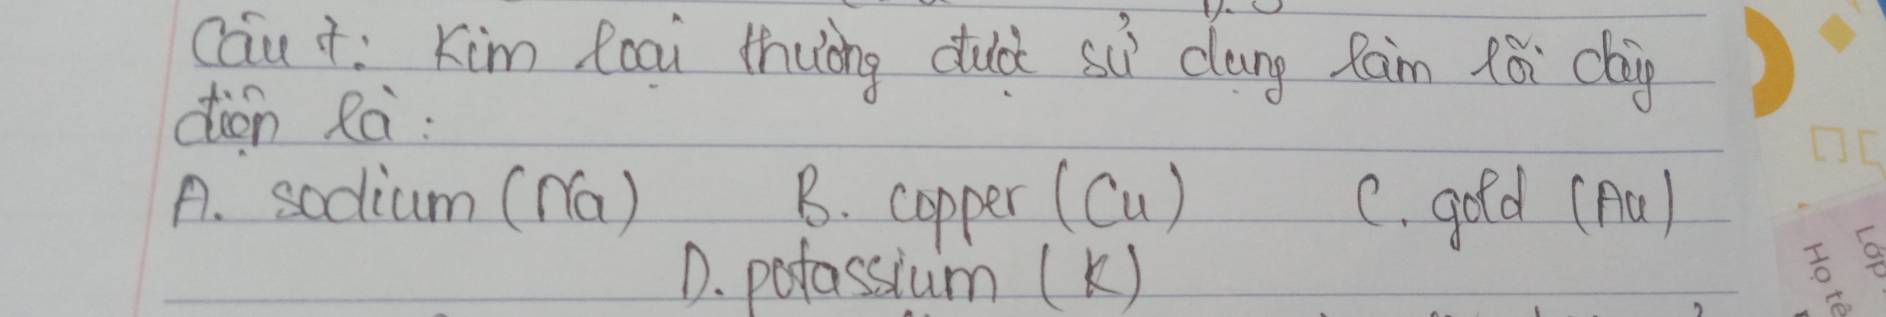 Câu 7: Kim loại thường được sử dụng làm lõi dây
điện là:
A. sodium (Na) B. copper (Cu) C. gold (Au)
D. potassium (K)
Lớp
Họ tê